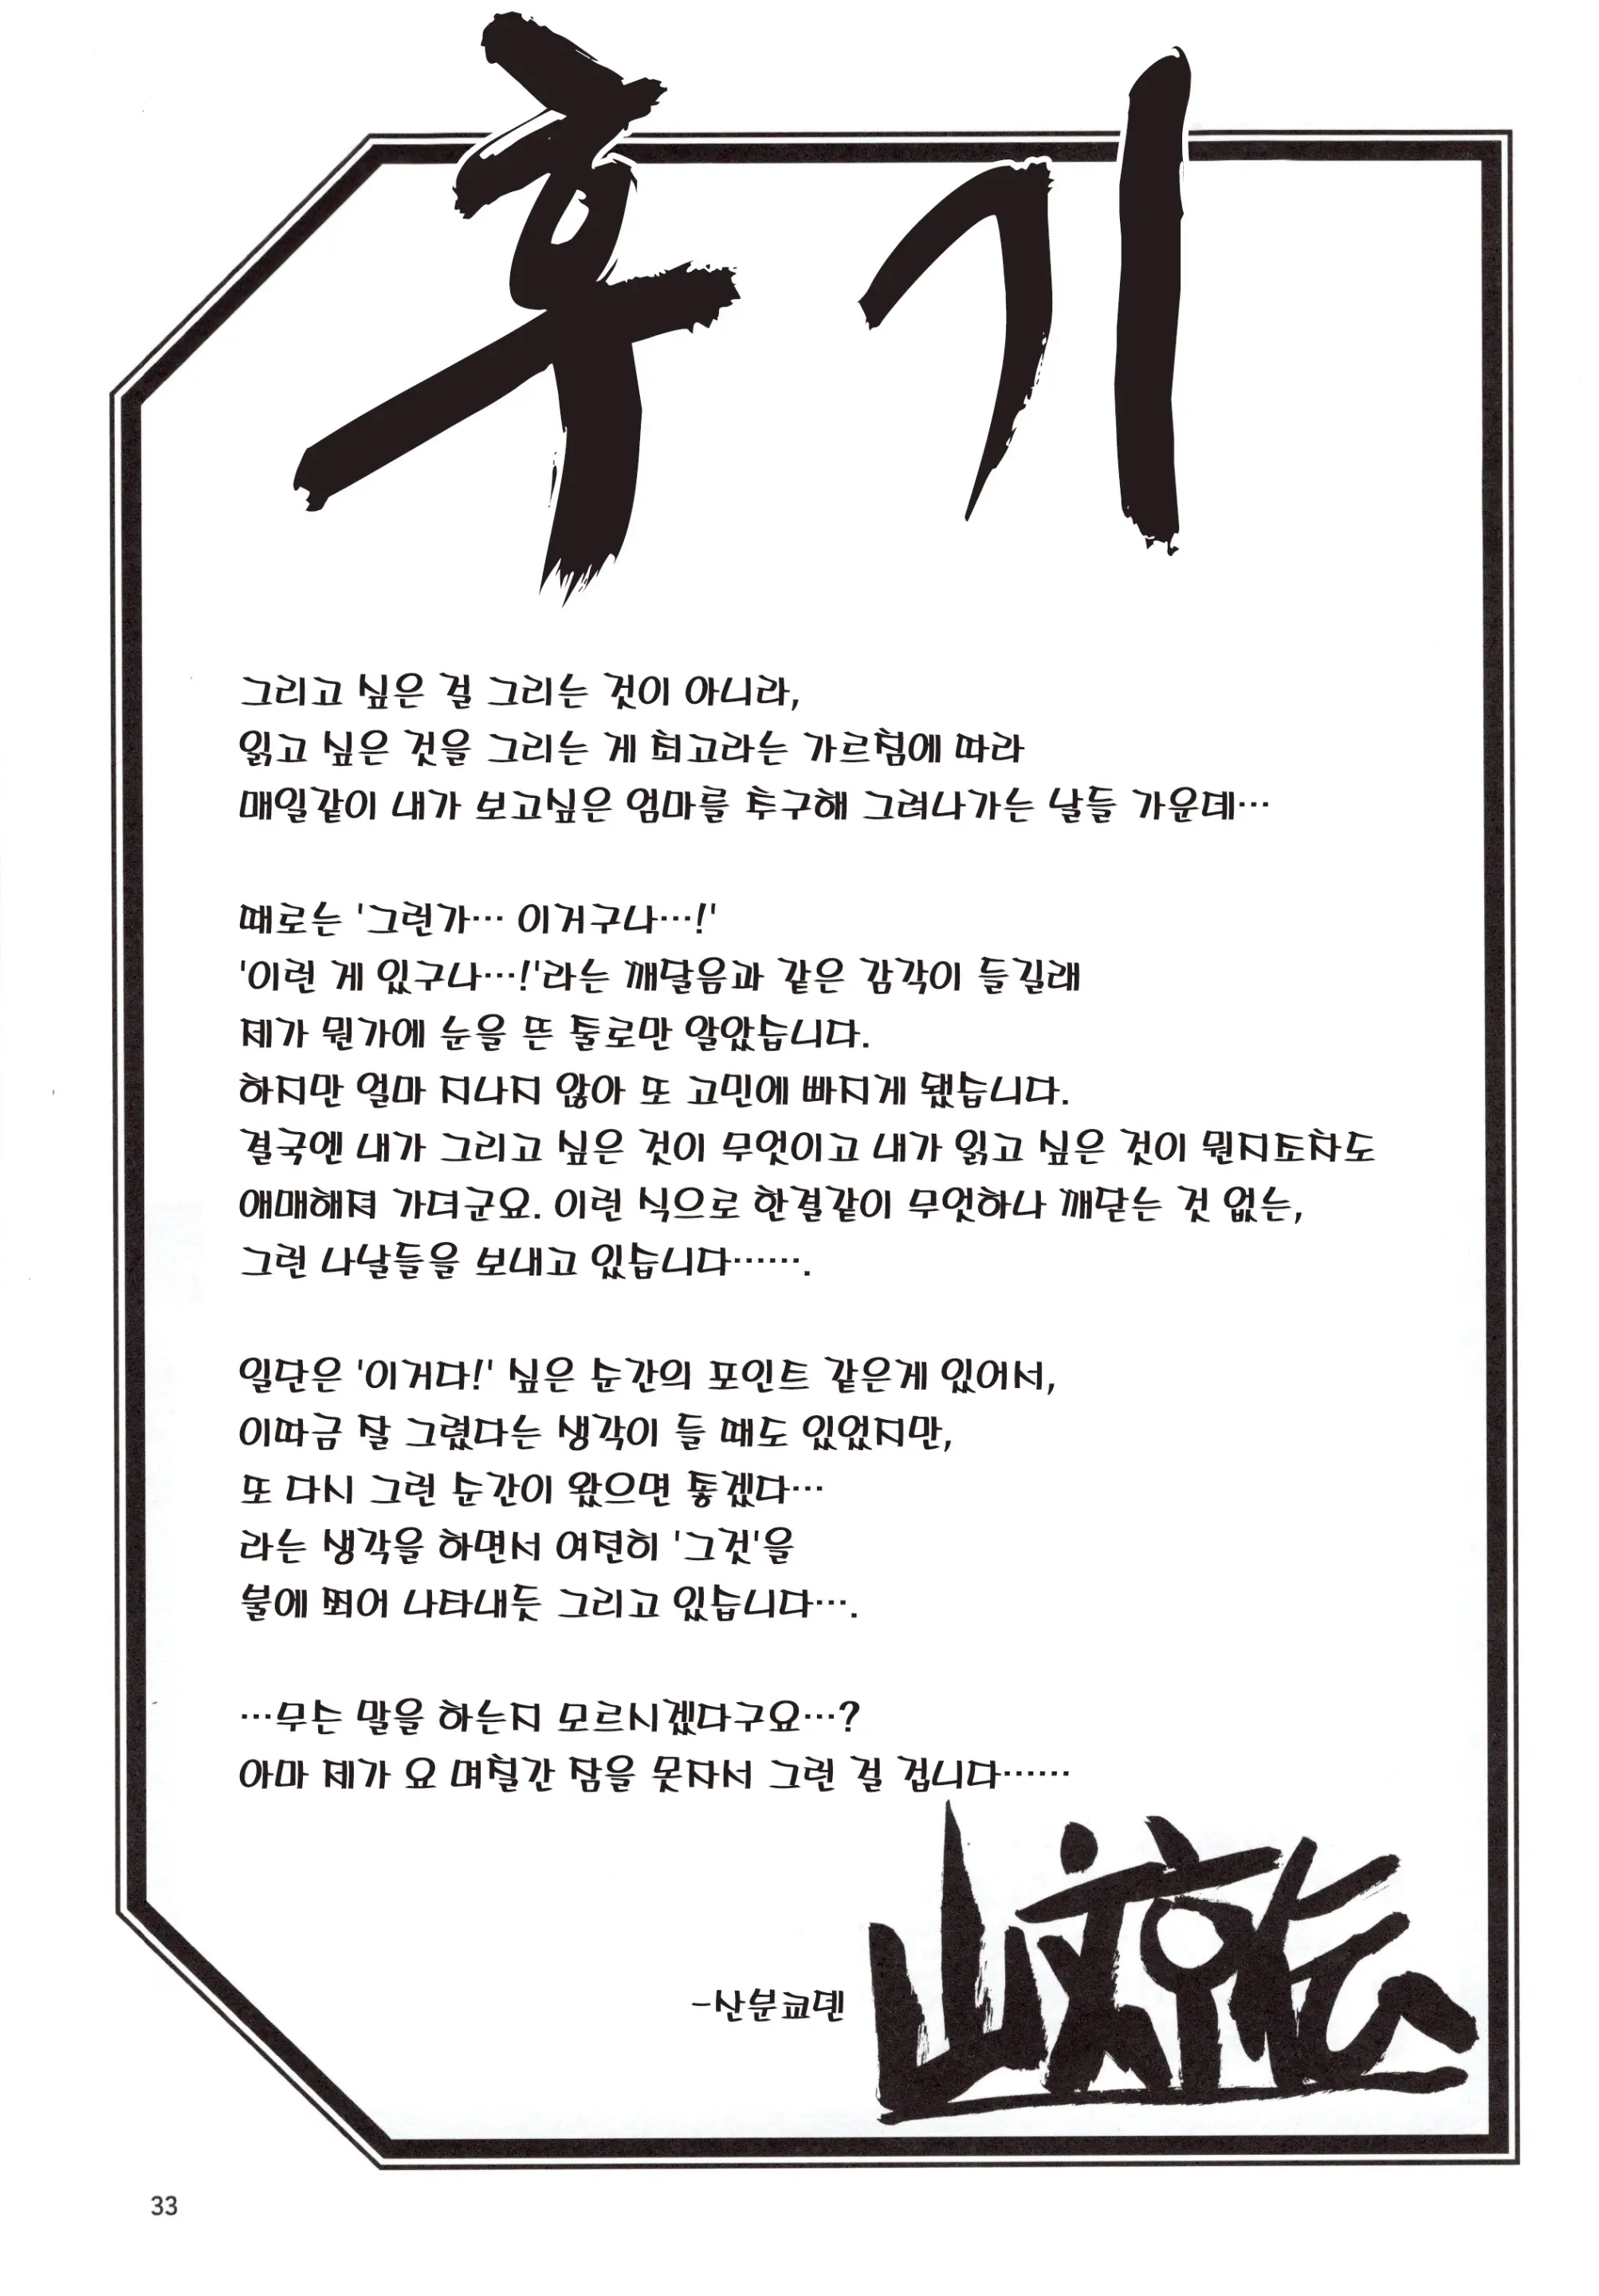 후기
그리고 싶은 걸 그리는 것이 아니라,
읽고 싶은 것을 그리는 게 최고라는 가르침에 따라
매일같이 내가 보고싶은 엄마를 추구해 그려나가는 날들 가운데…
때로는 '그런가… 이거구나…!'
'이런 게 있구나…!'라는 깨달음과 같은 감각이 들길래
제가 뭔가에 눈을 뜬 줄로만 알았습니다.
하지만 얼마 지나지 않아 또 고민에 빠지게 됐습니다.
결국엔 내가 그리고 싶은 것이 무엇이고 내가 읽고 싶은 것이 뭔지조차도
애매해져 가더군요. 이런 식으로 한결같이 무엇하나 깨닫는 것 없는,
그런 나날들을 보내고 있습니다…….
일단은 '이거다!' 싶은 순간의 포인트 같은게 있어서,
이따금 잘 그렸다는 생각이 들 때도 있었지만,
또 다시 그런 순간이 왔으면 좋겠다…
라는 생각을 하면서 여전히 '그것'을
불에 쬐어 나타내듯 그리고 있습니다….
…무슨 말을 하는지 모르시겠다구요…?
아마 제가 요 며칠간 잠을 못자서 그런 걸 겁니다……
-산분쿄덴
山文京伝
33